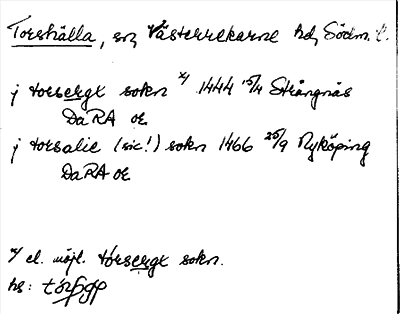 Torshälla, sn, Västerrekarne hd, Södm. l.
j torsergt sokn x/ 1444 15/4 Strängnäs
DaRA or.
j torsalie (sic!) sokn 1466 25/9 Nyköping
DaRA or
x/ el. möjl. torsergt sokn.
hs: